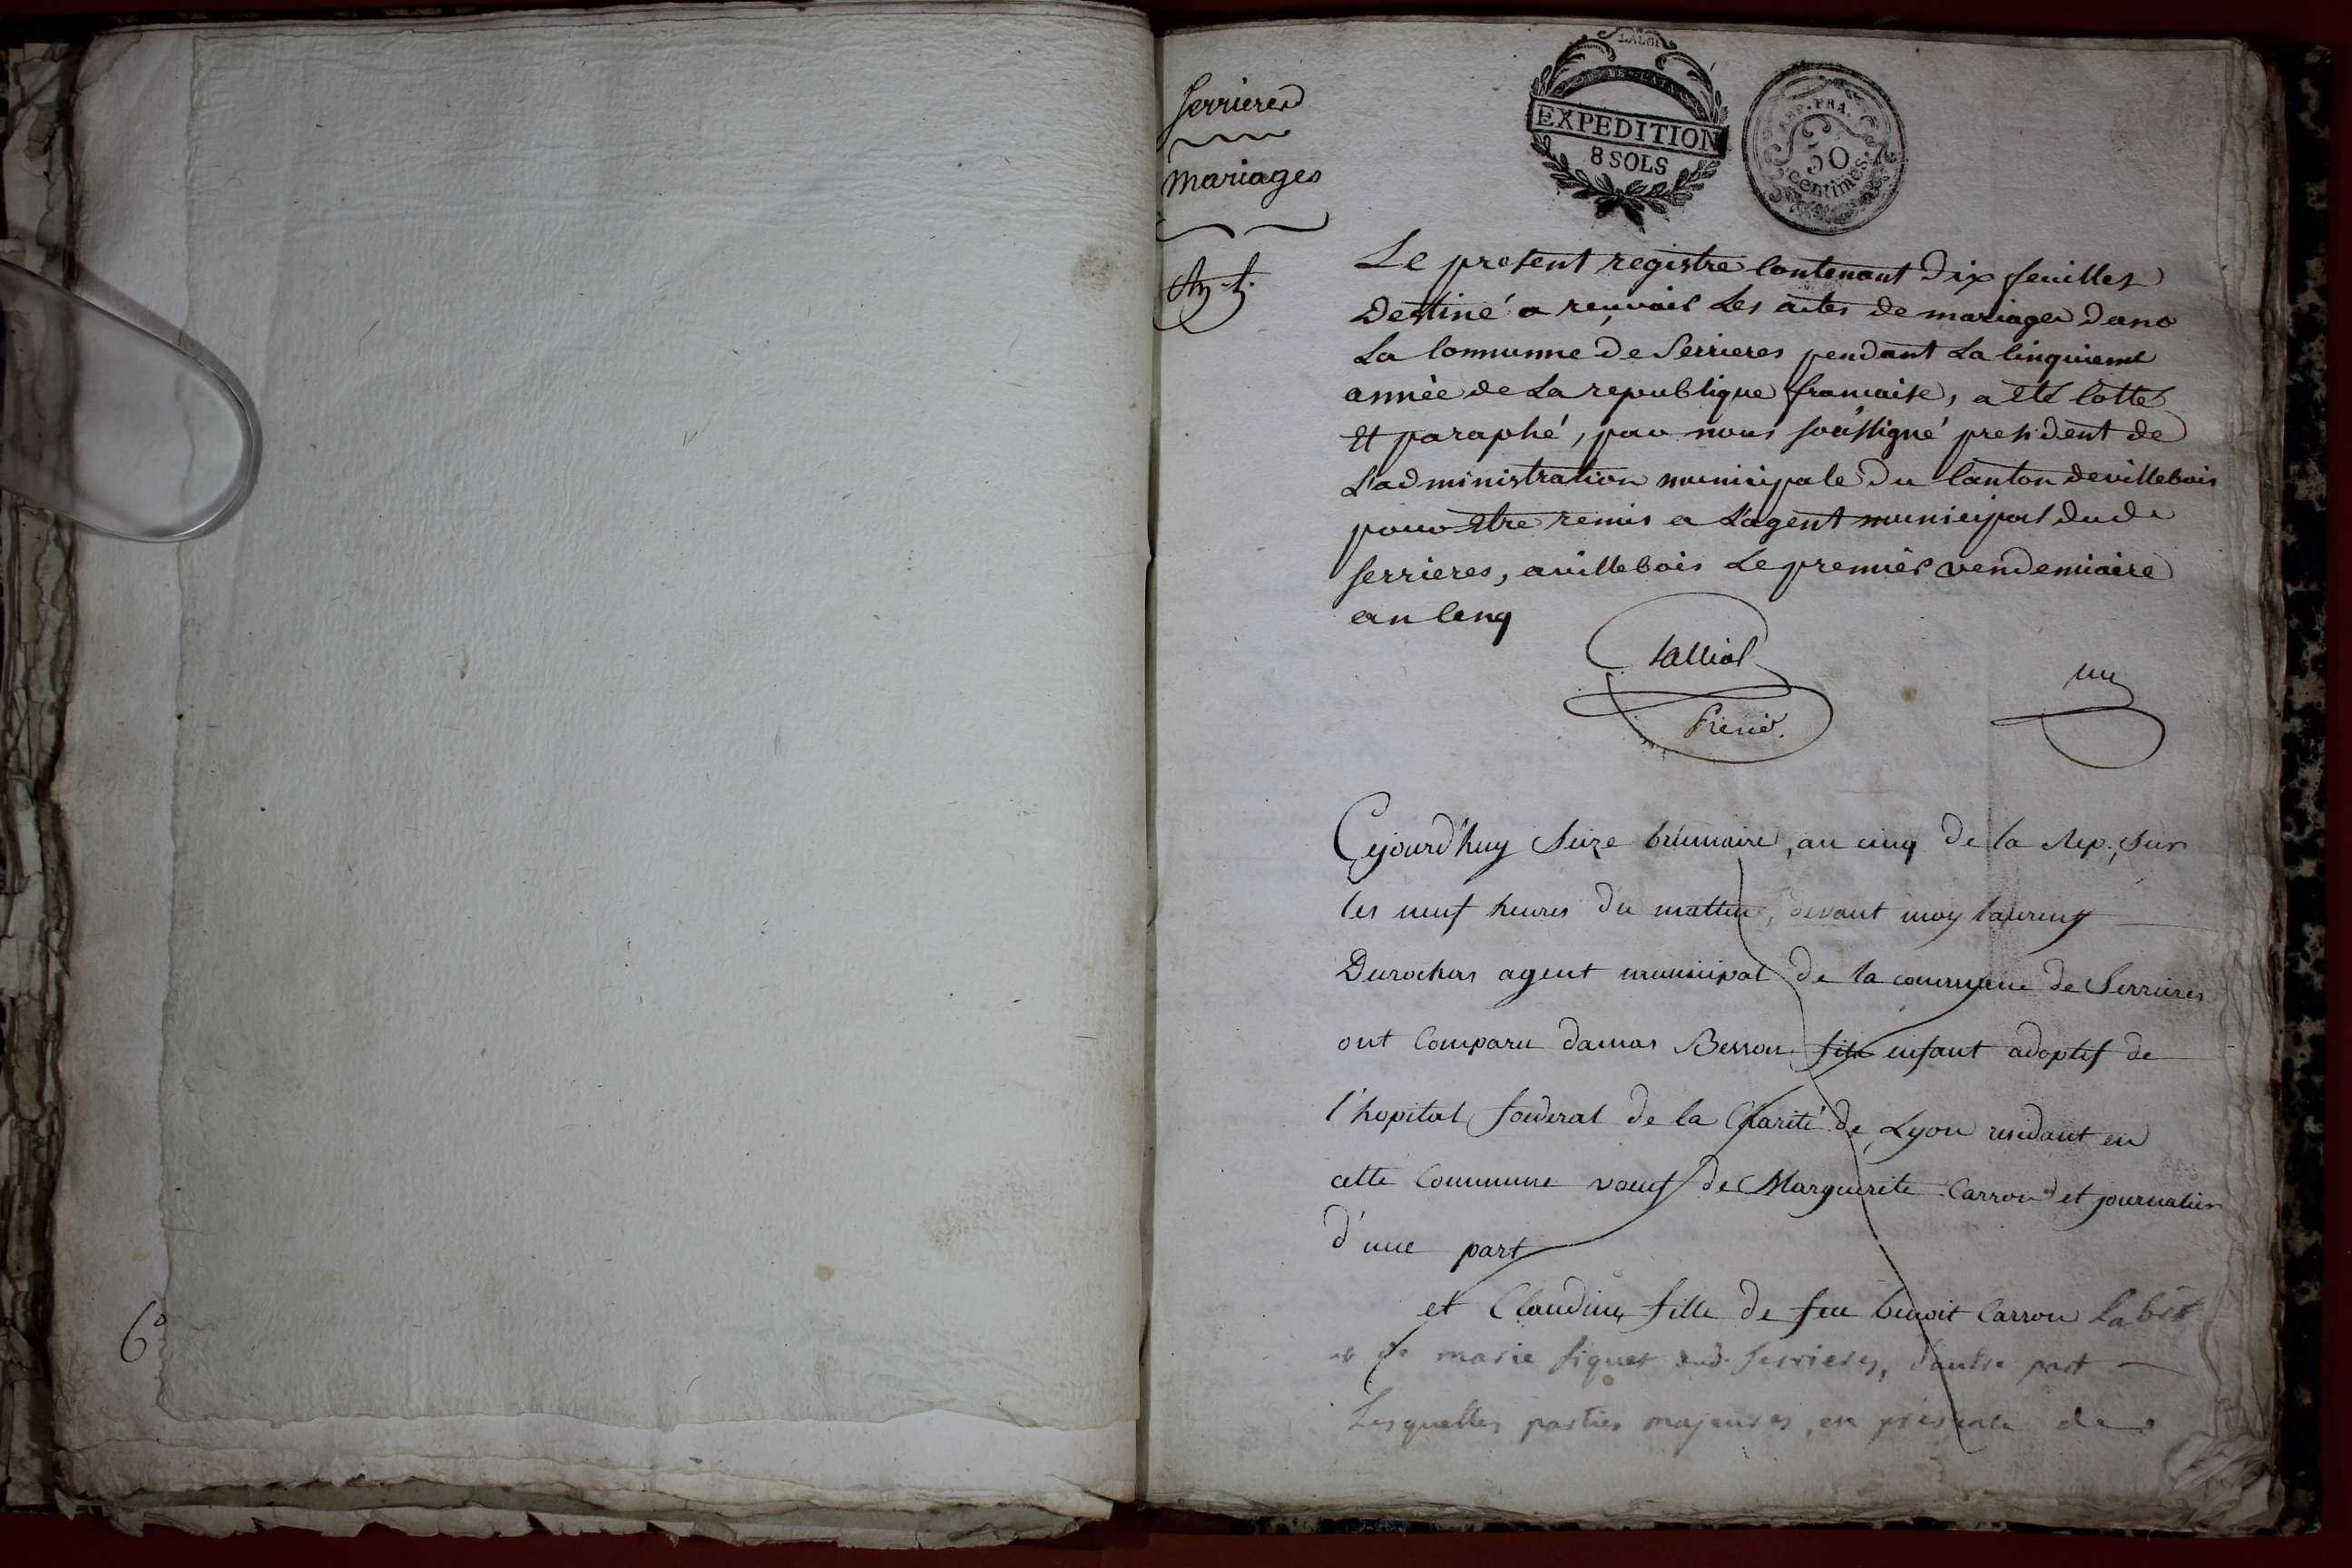 Serrieres
Mariages
An 5.
LA LOI
EXPEDITION
8 SOLS
REP. FRA.
50
centimes.
Le present registre contenant dix feuilles
Destiné a reçuoir les actes de mariages dans
La Commune de Serrieres pendant La Cinquieme
année de La republique francaise, a été Cotté
Et paraphé, par nous soussigné president de
L'administration municipale du Canton de villebois
pour Etre remis a L'agent municipal dud.
Serrieres, a villebois Le premier vendemiaire
an Cinq
un
Cejourd'huy Seize brumaire, an cinq de la Rep., sur
les neuf heures du mattin, devant moy laurent
Durochas agent municipal de la commune de Serrieres
ont Comparu damas Besson fils enfant adoptif de
l'hopital de la Charité de Lyon residant en
cette Commune vœuf de Marguerite Carron et journalier
d'une part
et Claudine fille de feu benoit Carron
et de marie dud. Serrieres, d'autre part
Lesquelles parties majeures, en présence de
6